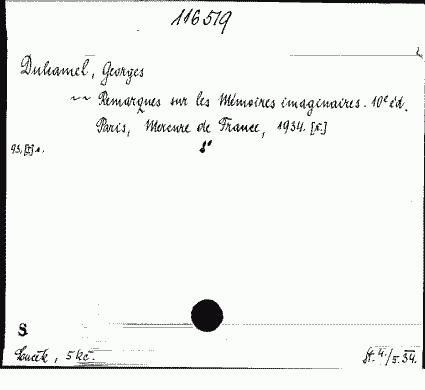 116519
Duhamel, Georges
~~ Remarques sur les Mémoires imaginaires. 10e éd.
Paris, Mercure de France, 1934. [k.]
93, [2] s. 8°
S
Souček, 5 Kč. St. 4./5.34.